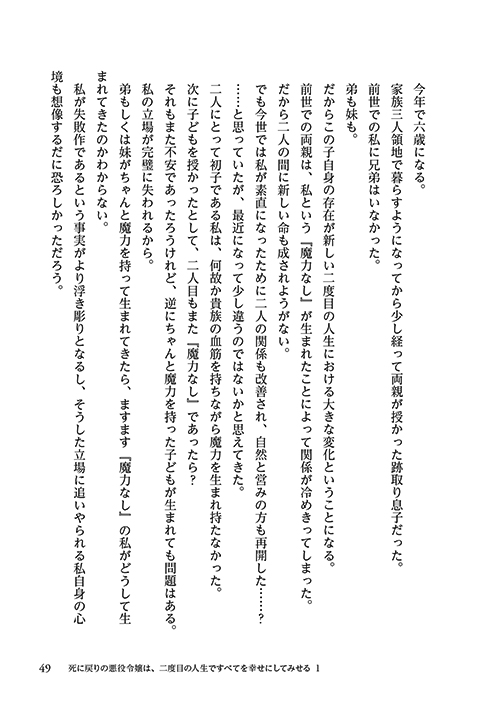 今年で六歳になる。
家族三人領地で暮らすようになってから少し経って両親が授かった跡取り息子だった。
前世での私に兄弟はいなかった。
弟も妹も。
だからこの子自身の存在が新しい二度目の人生における大きな変化ということになる。
前世での両親は、私という『魔力なし』が生まれたことによって関係が冷めきってしまった。
だから二人の間に新しい命も成されようがない。
でも今世では私が素直になったために二人の関係も改善され、自然と営みの方も再開した……？
……と思っていたが、最近になって少し違うのではないかと思えてきた。
二人にとって初子である私は、何故か貴族の血筋を持ちながら魔力を生まれ持たなかった。
次に子どもを授かったとして、二人目もまた『魔力なし』であったら？
それもまた不安であったろうけれど、逆にちゃんと魔力を持った子どもが生まれても問題はある。
私の立場が完璧に失われるから。
弟もしくは妹がちゃんと魔力を持って生まれてきたら、ますます『魔力なし』の私がどうして生
まれてきたのかわからない。
私が失敗作であるという事実がより浮き彫りとなるし、そうした立場に追いやられる私自身の心
境も想像するだに恐ろしかっただろう。
49　死に戻りの悪役令嬢は、二度目の人生ですべてを幸せにしてみせる 1